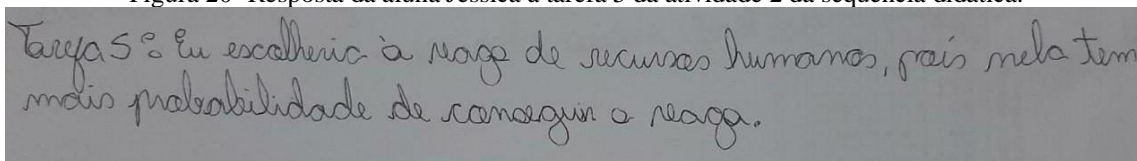 Figura 20- Resposta da aluna Jéssica à tarefa 5 da atividade 2 da sequência didática.
Tarefa 5: Eu escolheria à vaga de recursos humanos, pois nela tem
mais probabilidade de conseguir a vaga.